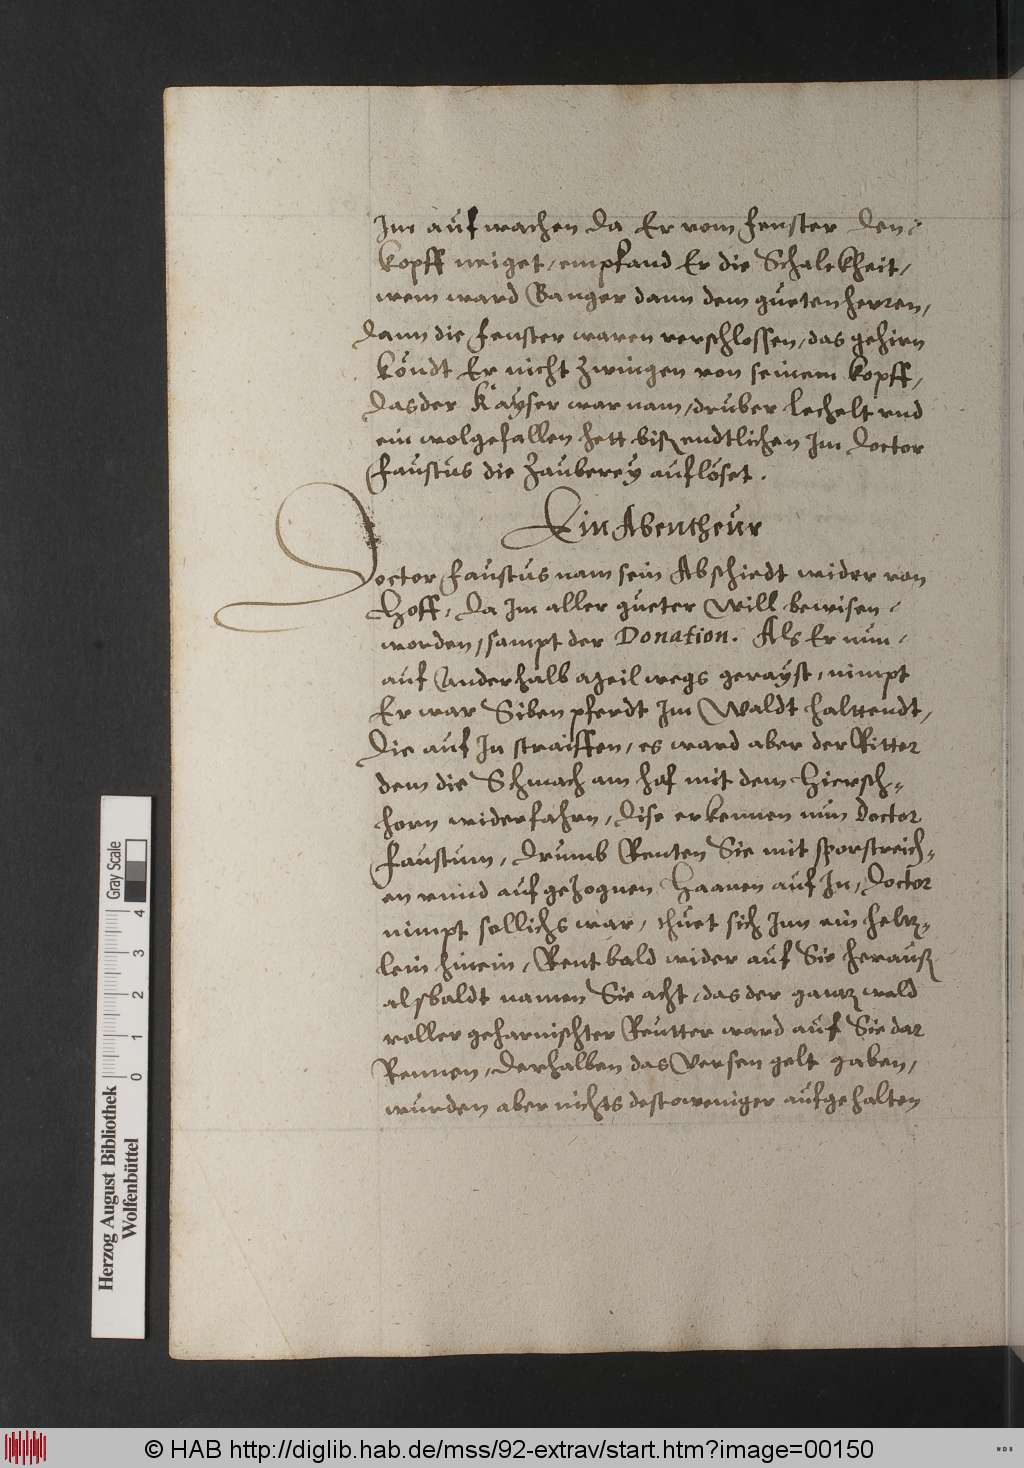 Im aufwachen da Er vom fenster den
kopff neiget, empfand Er die Schalckheit,
wem ward Banger dann dem gueten herren,
dann die fenster waren verschlossen, das gehirn
köndt Er nicht zwingen von seinem kopff,
das der Kayser war nam, druber lechelt vnd
ein wolgefallen hett biß endtlichen Im Doctor
Faustus die Zauberey auflöset.
Ein Abentheur
Doctor Faustus nam sein Abschiedt wider von
Hoff, da Im aller gueter Will bewisen
worden, sampt der Donation. Als Er nun
auf Anderhalb meil wegs gerayst, nimpt
Er war Siben pferdt Im Waldt halttendt,
Die auf In straiffen, es ward aber der Ritter
dem die Schmach am hof mit dem Hiersch=
horn widerfahrn, dise erkennen nun Doctor
Faustum, drumb Renten Sie mit sporstreich=
en vnnd aufgezognen Haanen auf In, Doctor
nimpt sollichs war, thuet sich Inn ein heltz=
lein hinein, Rent bald wider auf Sie herauß
alsbaldt namen Sie acht, das der gantz wald
voller geharnischter Reutter ward auf Sie dar
Rennen, derhalben das Versen gelt gaben,
wurden aber nichts destoweniger aufgehalten
Herzog August Bibliothek
Wolfenbüttel
Gray Scale
0 1 2 3 4
© HAB http://diglib.hab.de/mss/92-extrav/start.htm?image=00150
WDB